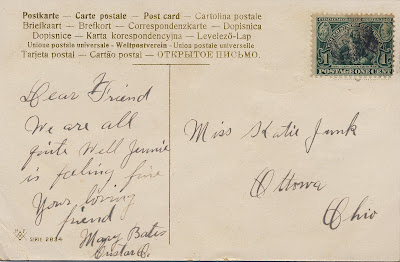 Postkarte — Carte postale — Post card — Cartolina postale
Briefkaart — Brefkort — Correspondenzkarte — Dopisnica
Dopisnice — Karta korespondencyjna — Levelező-Lap
Unione postale universale - Weltpostverein - Union postale universelle
Tarjeta postal — Cartão postal — ОТКРЫТОЕ ПИСЬМО.
1 POSTAGE ONE CENT 1
Dear Friend
We are all
quite well Jennie
is feeling fine
Your loving
friend
Mary Bates
Custar O.
Miss Katie Junk
Ottowa
Ohio